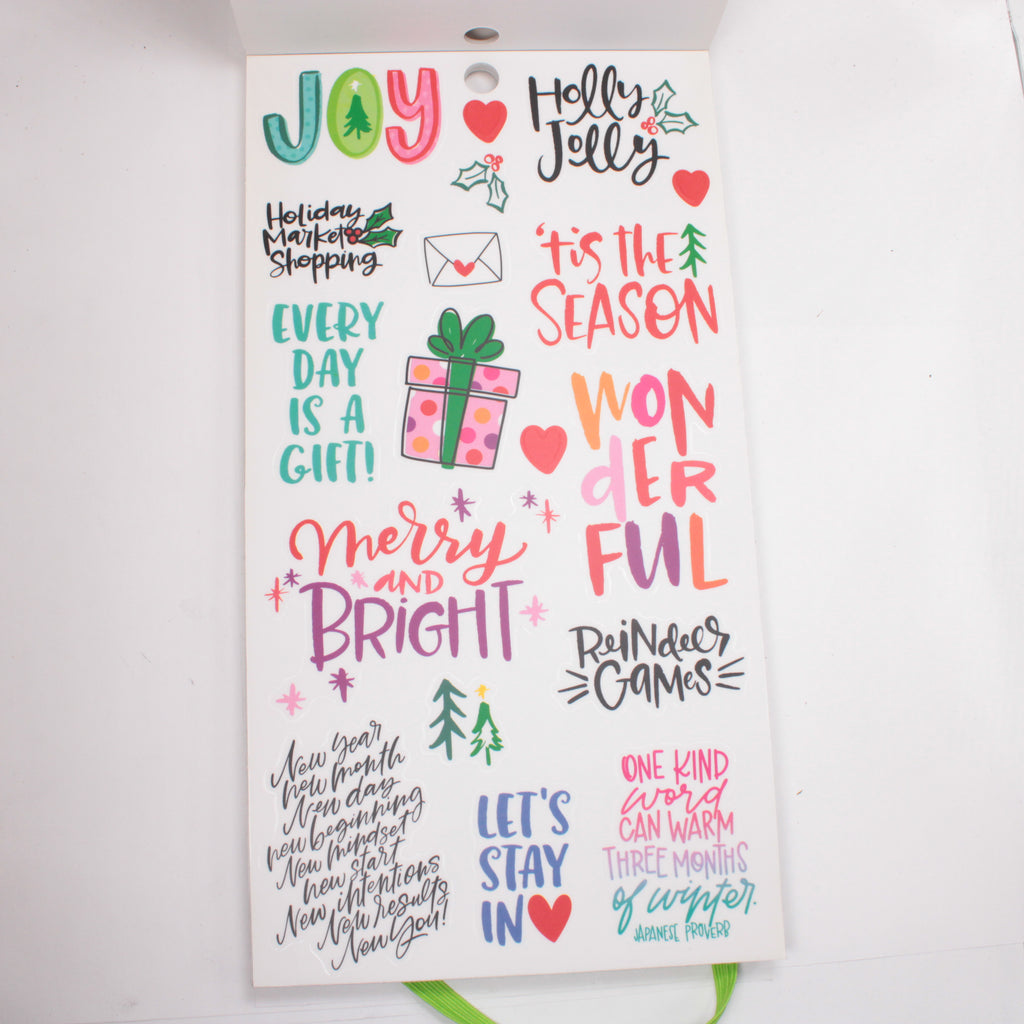 JOY
Holly
Jolly
Holiday
Market
Shopping
'tis the
SEASON
EVERY
DAY
IS A
GIFT!
WON
dER
FUL
merry
AND
BRIGHT
ReiNdeer
GAMes
New year
new month
New day
new beginning
New mindset
new start
New intentions
New results
New You!
LET'S
STAY
IN
ONE KIND
word
CAN WARM
THREE MONTHS
of winter.
JAPANESE PROVERB